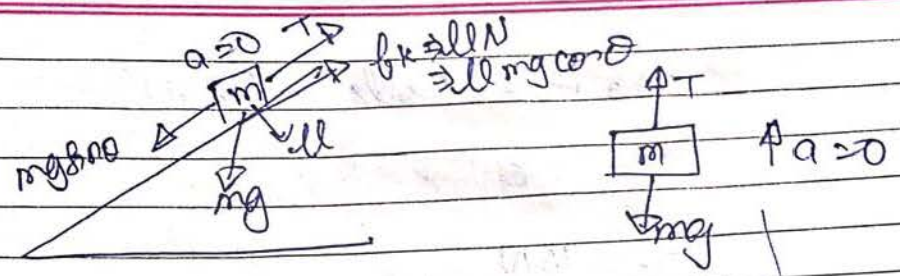 a=0 T
fk ⇒ μN
⇒ μ mg cosθ
m
mg sinθ
μ
mg
T
m
a=0
mg